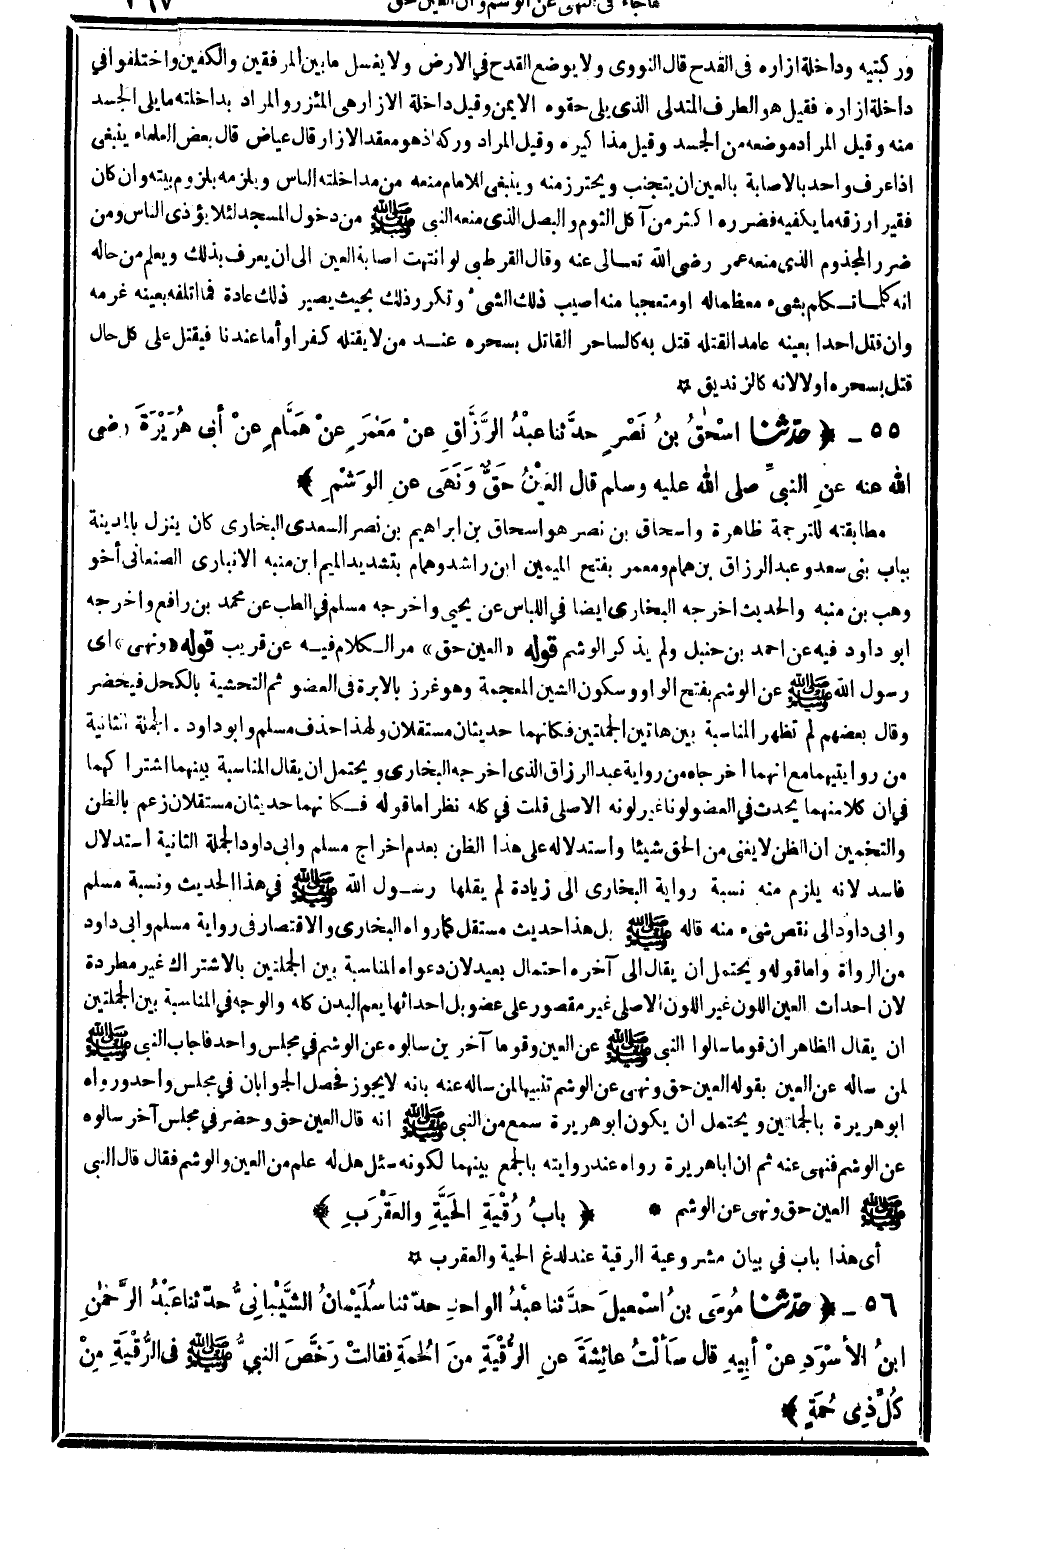 ماجاء في النهي عن الوشم وأن العين حق
وركبتيه وداخلة ازاره فى القدح قال النووى ولا يوضع القدح في الارض ولا يغسل مابين المرفقين والكفين واختلفوا في
داخلة ازاره فقيل هو الطرف المتدلى الذى يلى حقوه الايمن وقيل داخلة الازار هى المئزر والمراد بداخلته ما يلى الجسد
منه وقيل المراد موضعه من الجسد وقيل مذاكيره وقيل المراد وركه اذهو معقد الازار قال عياض قال بعض العلماء ينبغى
اذا عرف واحد بالاصابة بالعين ان يتجنب ويحترز منه وينبغى للامام منعه من مداخلته الناس ويلزمه بلزوم بيته وان كان
فقيرا رزقه ما يكفيه فضرره اكثر من آكل الثوم والبصل الذى منعه النبى ﷺ من دخول المسجد لئلا يؤذى الناس ومن
ضرر المجذوم الذى منعه عمر رضى الله تعالى عنه وقال القرطبى لو انتهت اصابة العين الى ان يعرف بذلك ويعلم من حاله
انه كلما تكلم بشىء معظماله او متعجبا منه اصيب ذلك الشىء وتكرر ذلك بحيث يصير ذلك عادة فما اتلفه بعينه غرمه
وان قتل احدا بعينه عامدا لقتله قتل به كالساحر القاتل بسحره عند من لا يقتله كفرا وأما عندنا فيقتل على كل حال
قتل بسحره اولا لانه كالزنديق ☆
٥٥ – ﴿ حدثنا اسْحٰقُ بنُ نَصْرٍ حدّثنا عبْدُ الرَّزَّاقِ عنْ مَعْمَرٍ عنْ هَمَّامٍ عنْ أبى هُرَيْرَةَ رضى
الله عنه عنِ النبىِّ صلى الله عليه وسلم قال العَيْنُ حَقٌّ وَنَهَى عنِ الوَشْمِ ﴾
مطابقته للترجمة ظاهرة واسحاق بن نصر هو اسحاق بن ابراهيم بن نصر السعدى البخارى كان ينزل بالمدينة
بباب بنى سعد وعبد الرزاق بن همام ومعمر بفتح الميمين ابن راشد وهمام بتشديد الميم ابن منبه الانبارى الصنعانى أخو
وهب بن منبه والحديث اخرجه البخارى ايضا في اللباس عن يحيى واخرجه مسلم في الطب عن محمد بن رافع واخرجه
ابو داود فيه عن احمد بن حنبل ولم يذكر الوشم قوله «العين حق» مر الكلام فيه عن قريب قوله «ونهى» اى
رسول الله ﷺ عن الوشم بفتح الواو وسكون الشين المعجمة وهو غرز بالابرة فى العضو ثم التحشية بالكحل فيخضر
وقال بعضهم لم تظهر المناسبة بين هاتين الجملتين فكانهما حديثان مستقلان ولهذا حذف مسلم وابو داود . الجملة الثانية
من روايتيهما مع انهما اخرجاه من رواية عبد الرزاق الذى اخرجه البخارى ويحتمل ان يقال المناسبة بينهما اشتراكهما
في ان كلا منهما يحدث في العضو لونا غير لونه الاصلى قلت في كله نظر اما قوله فكانهما حديثان مستقلان زعم بالظن
والتخمين ان الظن لا يغنى من الحق شيئا واستدلاله على هذا الظن بعدم اخراج مسلم وابى داود الجملة الثانية استدلال
فاسد لانه يلزم منه نسبة رواية البخارى الى زيادة لم يقلها رسول الله ﷺ في هذا الحديث ونسبة مسلم
وابى داود الى نقص شىء منه قاله ﷺ بل هذا حديث مستقل كما رواه البخارى والاقتصار فى رواية مسلم وابى داود
من الرواة واما قوله ويحتمل ان يقال الى آخره احتمال بعيد لان دعواه المناسبة بين الجملتين بالاشتراك غير مطردة
لان احداث العين اللون غير اللون الاصلى غير مقصور على عضو بل احداثها يعم البدن كله والوجه في المناسبة بين الجملتين
ان يقال الظاهر ان قوما سالوا النبى ﷺ عن العين وقوما آخرين سالوه عن الوشم في مجلس واحد فاجاب النبى ﷺ
لمن ساله عن العين بقوله العين حق ونهى عن الوشم تنبيها لمن ساله عنه بانه لا يجوز فحصل الجوابان في مجلس واحد ورواه
ابو هريرة بالجملتين ويحتمل ان يكون ابو هريرة سمع من النبى ﷺ انه قال العين حق وحضر في مجلس آخر سالوه
عن الوشم فنهى عنه ثم ان اباهريرة رواه عند روايته بالجمع بينهما لكونه سئل هل له علم من العين والوشم فقال قال النبى
ﷺ العين حق ونهى عن الوشم • ﴿ بابُ رُقْيَةِ الحَيَّةِ والعَقْرَبِ ﴾
أى هذا باب في بيان مشروعية الرقية عند لدغ الحية والعقرب ☆
٥٦ – ﴿ حدثنا مُوسَى بنُ اسْمعِيلَ حدّثنا عبْدُ الواحِدِ حدّثنا سُلَيْمانُ الشَّيْبانِىُّ حدّثنا عَبْدُ الرَّحْمٰنِ
ابنُ الأسْوَدِ عنْ أبِيهِ قال سَألْتُ عائِشَةَ عنِ الرُّقْيَةِ مِنَ الحُمَةِ فقالتْ رَخَّصَ النبىُّ ﷺ فى الرُّقْيَةِ مِنْ
كُلِّ ذِى حُمَةٍ ﴾